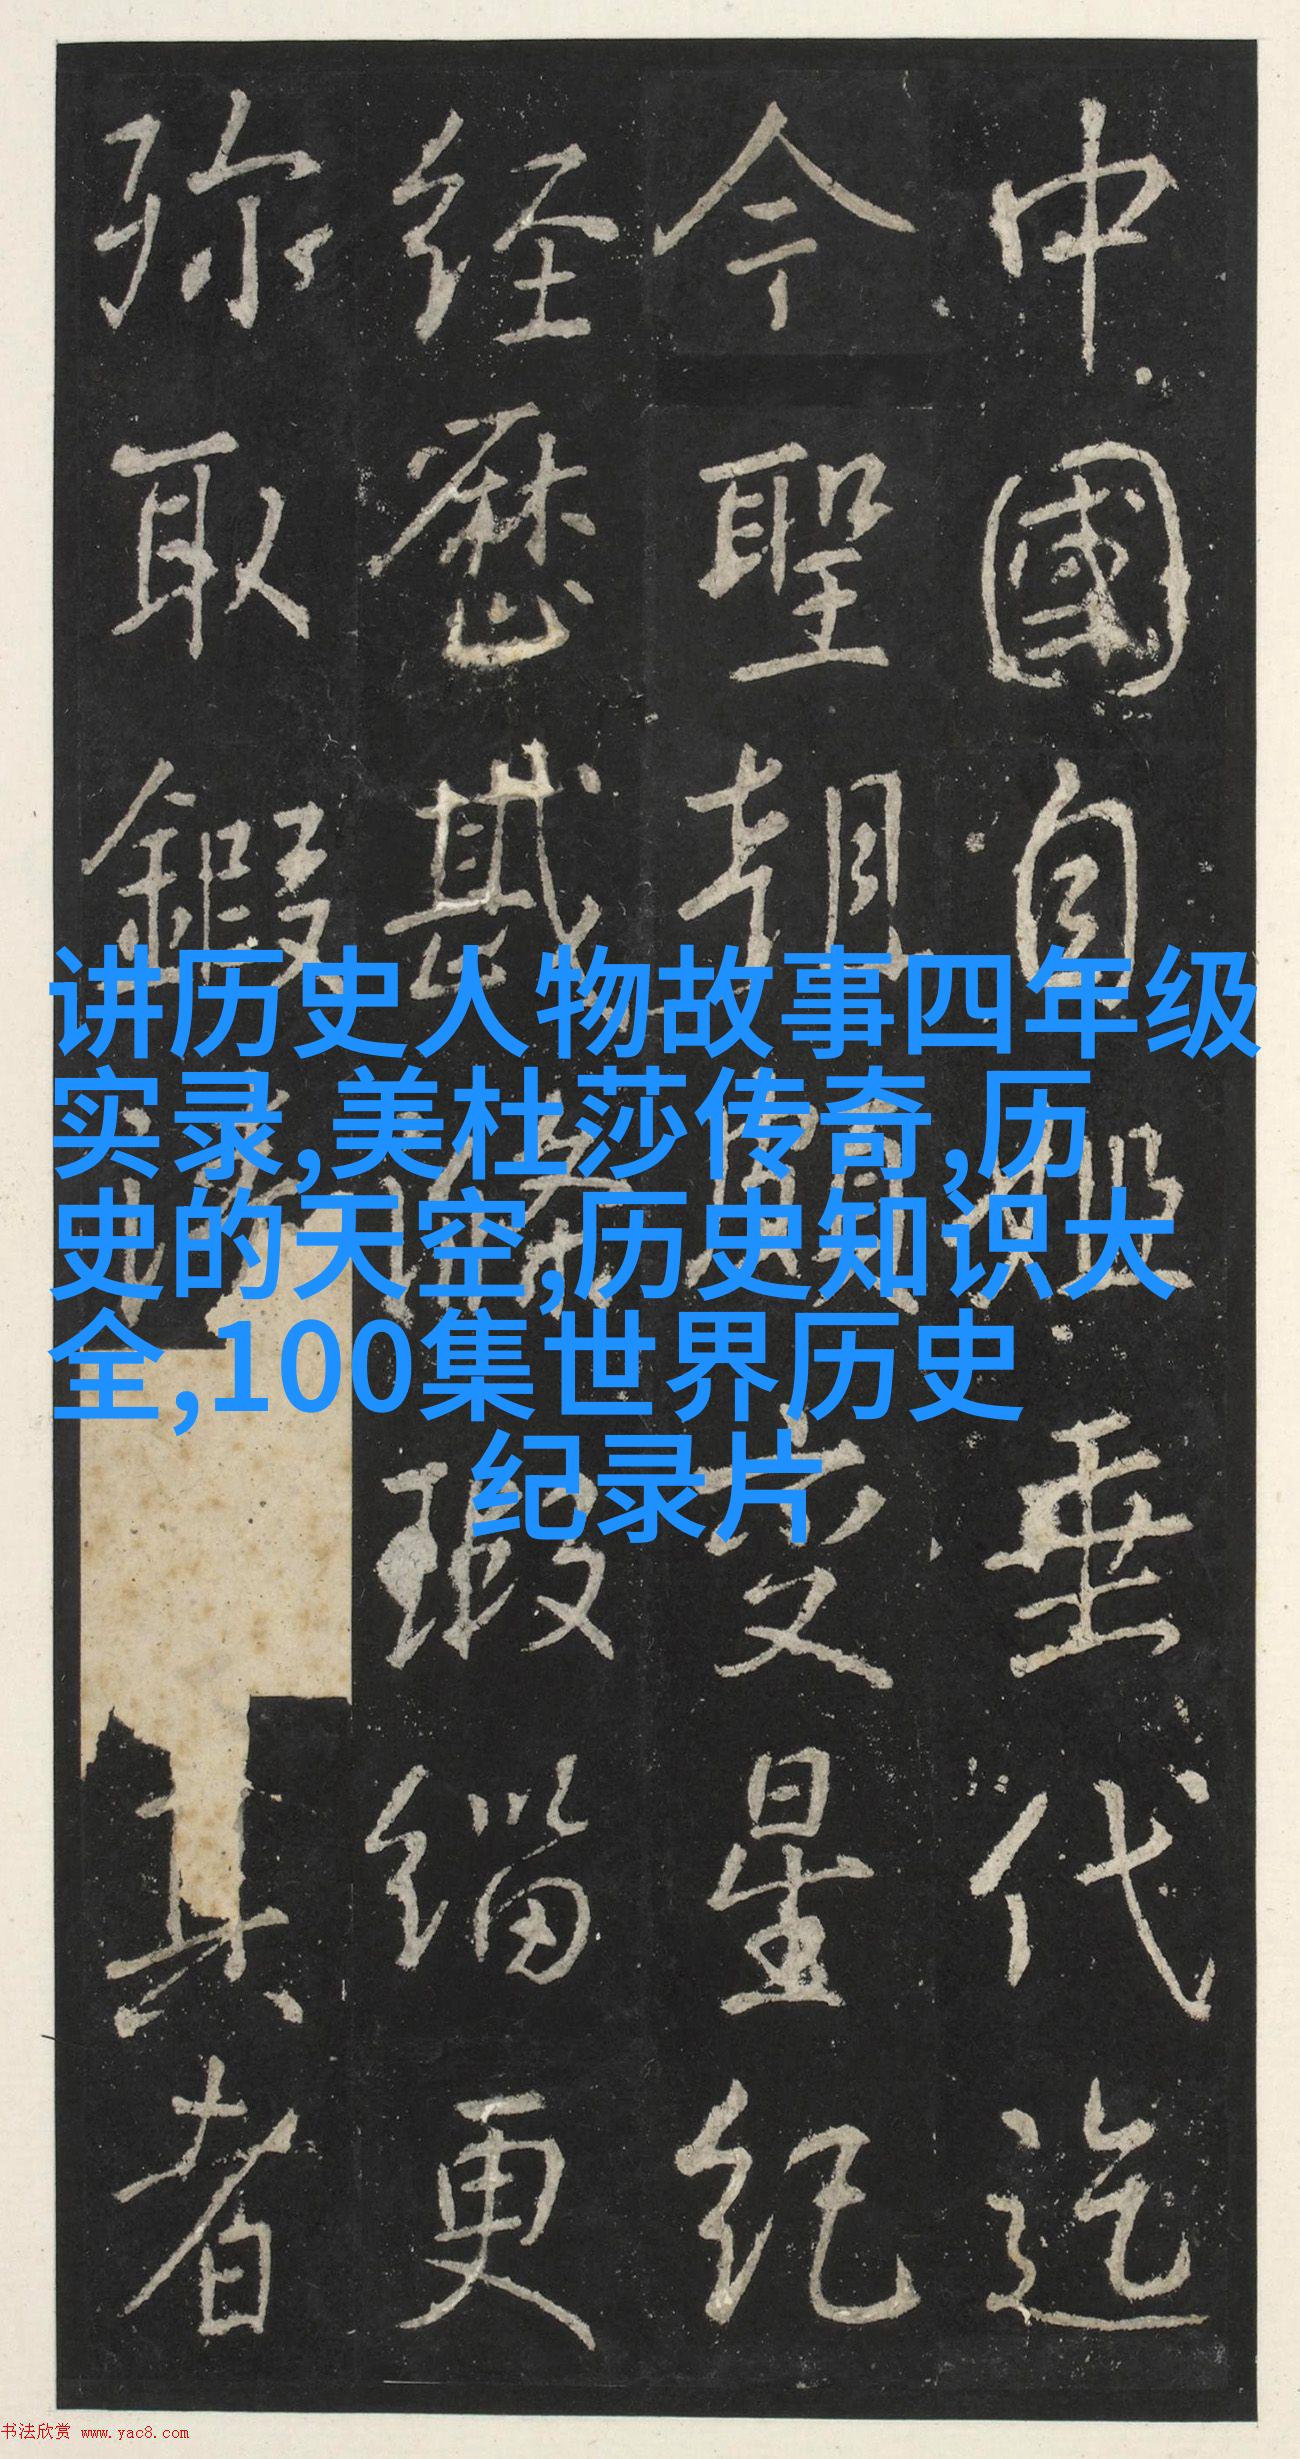 讲历史人物故事四年级
实录,美杜莎传奇,历
史的天空,历史知识大
全,100集世界历史
纪录片
中國自垂代迄
今聖朝星紀
經歷瑕緇更
弥取者
书法欣赏 www.yac8.com